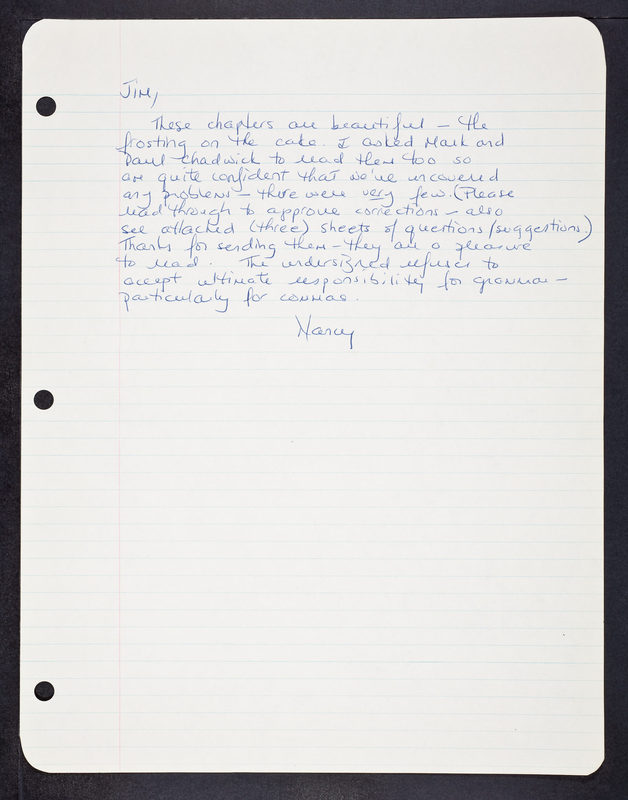 Jim,
These chapters are beautiful – the
frosting on the cake. I asked Mark and
Paul Chadwick to read them too so
are quite confident that we've uncovered
any problems – there were very few. (Please
read through to approve corrections – also
see attached (three) sheets of questions/suggestions.)
Thanks for sending them – they are a pleasure
to read. The undersigned refuses to
accept ultimate responsibility for grammar –
particularly for commas.
Nancy